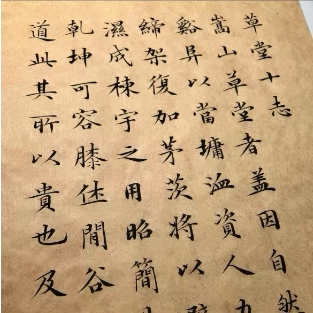 草堂十志
嵩山草堂者蓋因自然
谿阜以當墉洫資人力
締架復加茅茨將以
濕成棟宇之用昭簡
乾坤可容膝休閒谷
道此其所以貴也及